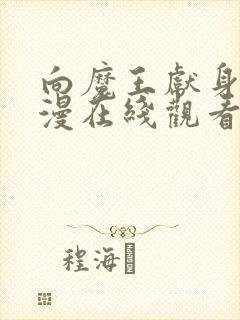 向魔王獻身
漫在綫觀看
程海